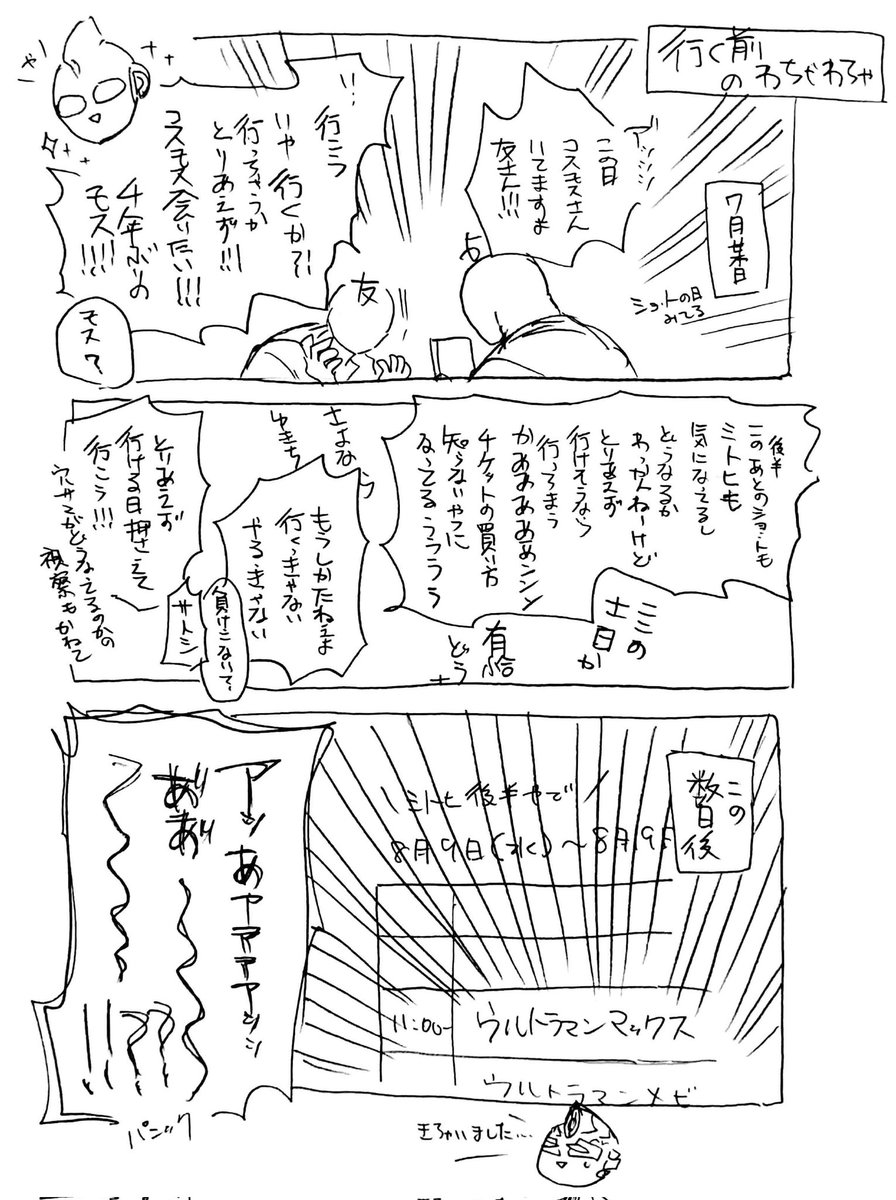 行く前
のわちゃわちゃ
7月某日
ショーの日
みてる
アッッッ
この日
コスモスさん
いてますよ
友さん!!!
友
行こう
いや 行くか?!
行っちゃうか
とりあえず!!!
コスモス会いたい!!!
千年ぶりの
モス!!!!
モス?
シャ
後半
このあとのショーも
ミトヒも
気になえるし
どうなるか
わっかんねーけど
とりあえず
行けそうなら
行っちまう
かあああああめンンン
チケットの買い方
知らないやつに
なってるううううう
ここの
土日か
有給
どう
さよなら
ゆきち
もうしかたねぇよ
行くっきゃない
やるっきゃない
負けこないって?
サトシ
とりあえず
行ける日押さえて
行こう!!!
視察もかねて
この
数日後
\ミトヒ後半やで/
8月9日(水)〜8月
11:00-
ウルトラマンマックス
ウルトラマンメビ
アッ あァアアアッッ
パニック
きちゃいました…